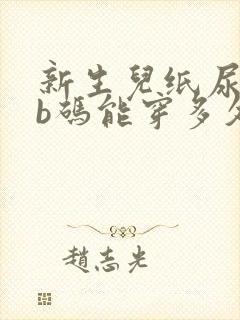 新生兒纸尿
b碼能穿多久
趙志光